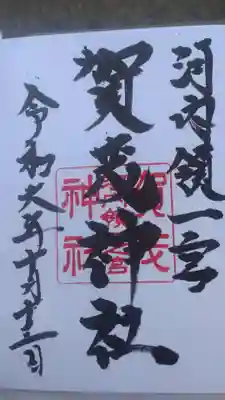 河内領一宮
賀茂神社
令和六年十月十三日
賀茂
神社